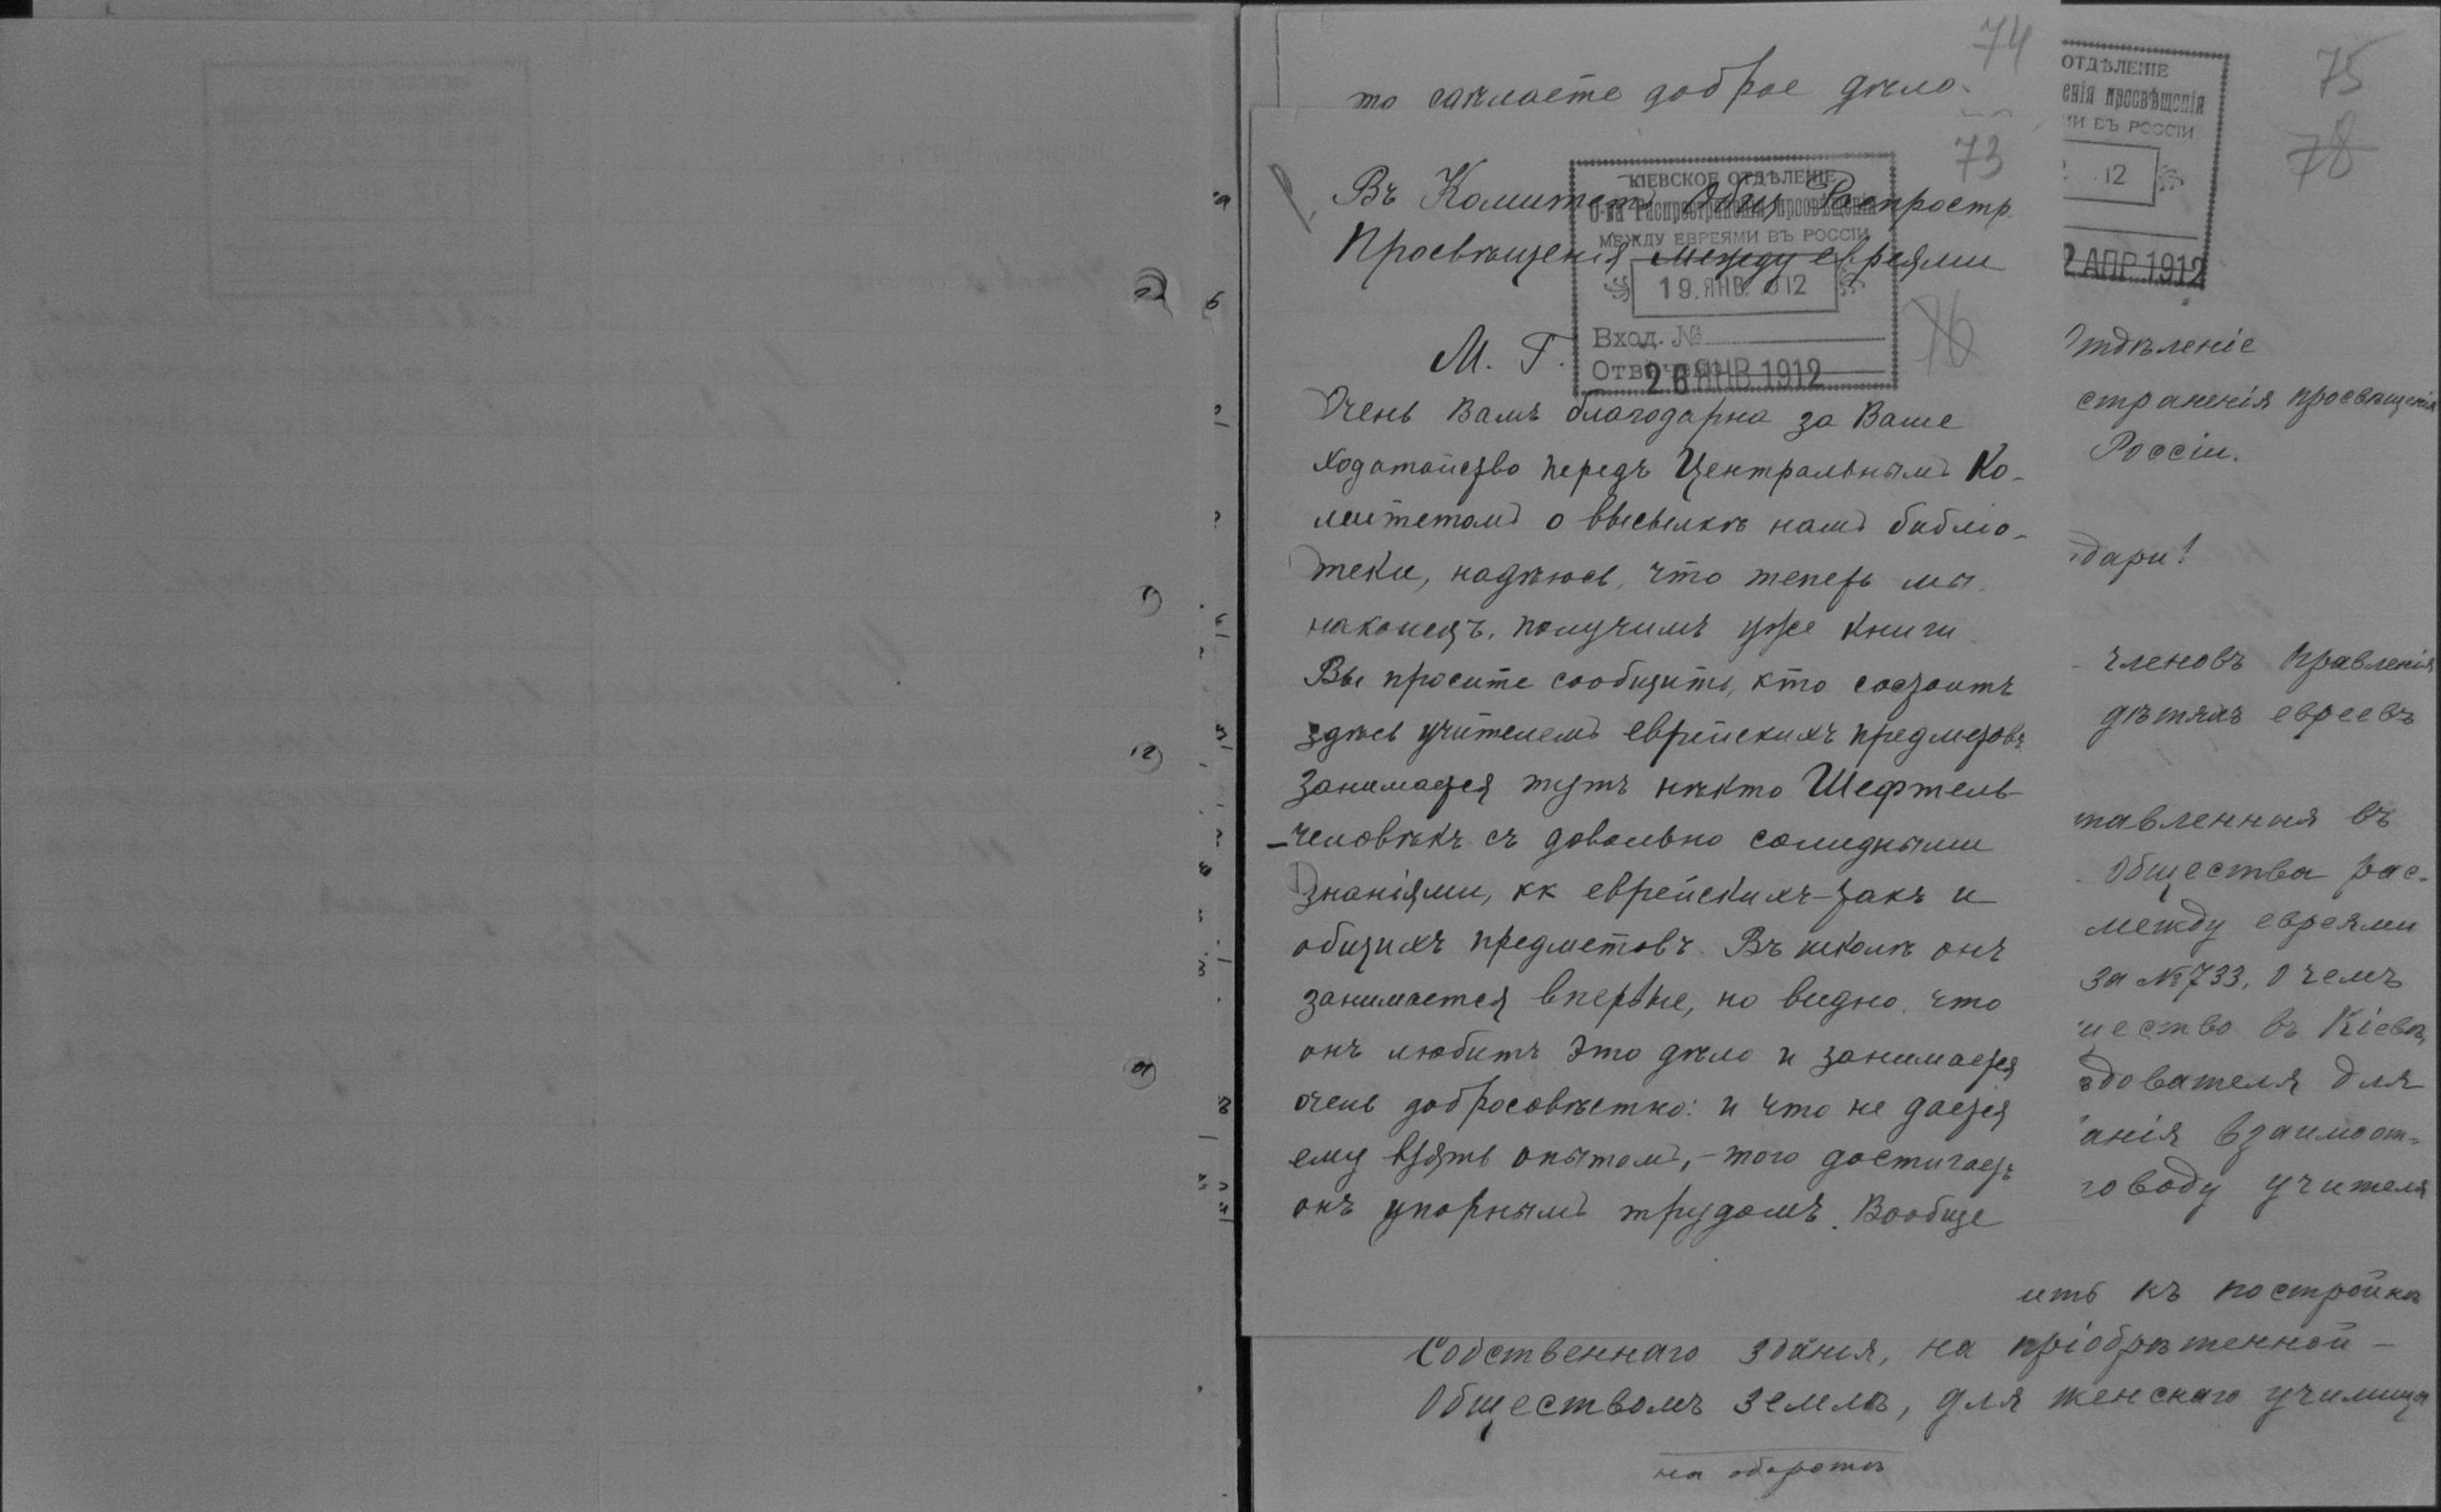 74
то сдѣлаете доброе дѣло.
73
Въ Комитетъ Общ. Распростр.
Просвѣщенія между евреями
КІЕВСКОЕ ОТДѢЛЕНІЕ
О-ва Распространенія просвѣщенія
МЕЖДУ ЕВРЕЯМИ ВЪ РОССІИ
19. ЯНВ. 912
Вход. №
Отвѣчено
26 ЯНВ 1912
76
М. Г.
Очень Вамъ благодарна за Ваше
ходатайство передъ Центральнымъ Ко-
митетомъ о высылкѣ намъ библіо-
теки, надѣюсь, что теперь мы
наконецъ, получимъ уже книги
Вы просите сообщить, кто состоитъ
здѣсь учителемъ еврейскихъ предметовъ
Занимается тутъ нѣкто Шефтель-
-человѣкъ съ довольно солидными
знаніями, кк еврейскихъ-такъ и
общихъ предметовъ. Въ школѣ онъ
занимается впервые, но видно, что
онъ любитъ это дѣло и занимается
очень добросовѣстно: и что не дается
ему взять опытомъ, - того достигаетъ
онъ упорнымъ трудомъ. Вообще
75
78
ОТДѢЛЕНІЕ
енія просвѣщенія
МИ ВЪ РОССІИ
12
2 АПР 1912
Отдѣленіе
страненія просвѣщенія
Россіи.
дари!
членовъ правленія
дѣтяхъ евреевъ
тавленная въ
Общества рас-
между евреями
за № 733, о чемъ
щество въ Кіевѣ,
здователя для
анія взаимоот-
говоду учителя
ить къ постройкѣ
Собственнаго зданія, на пріобрѣтенной -
Обществомъ землѣ, для женскаго училища
на оборотѣ